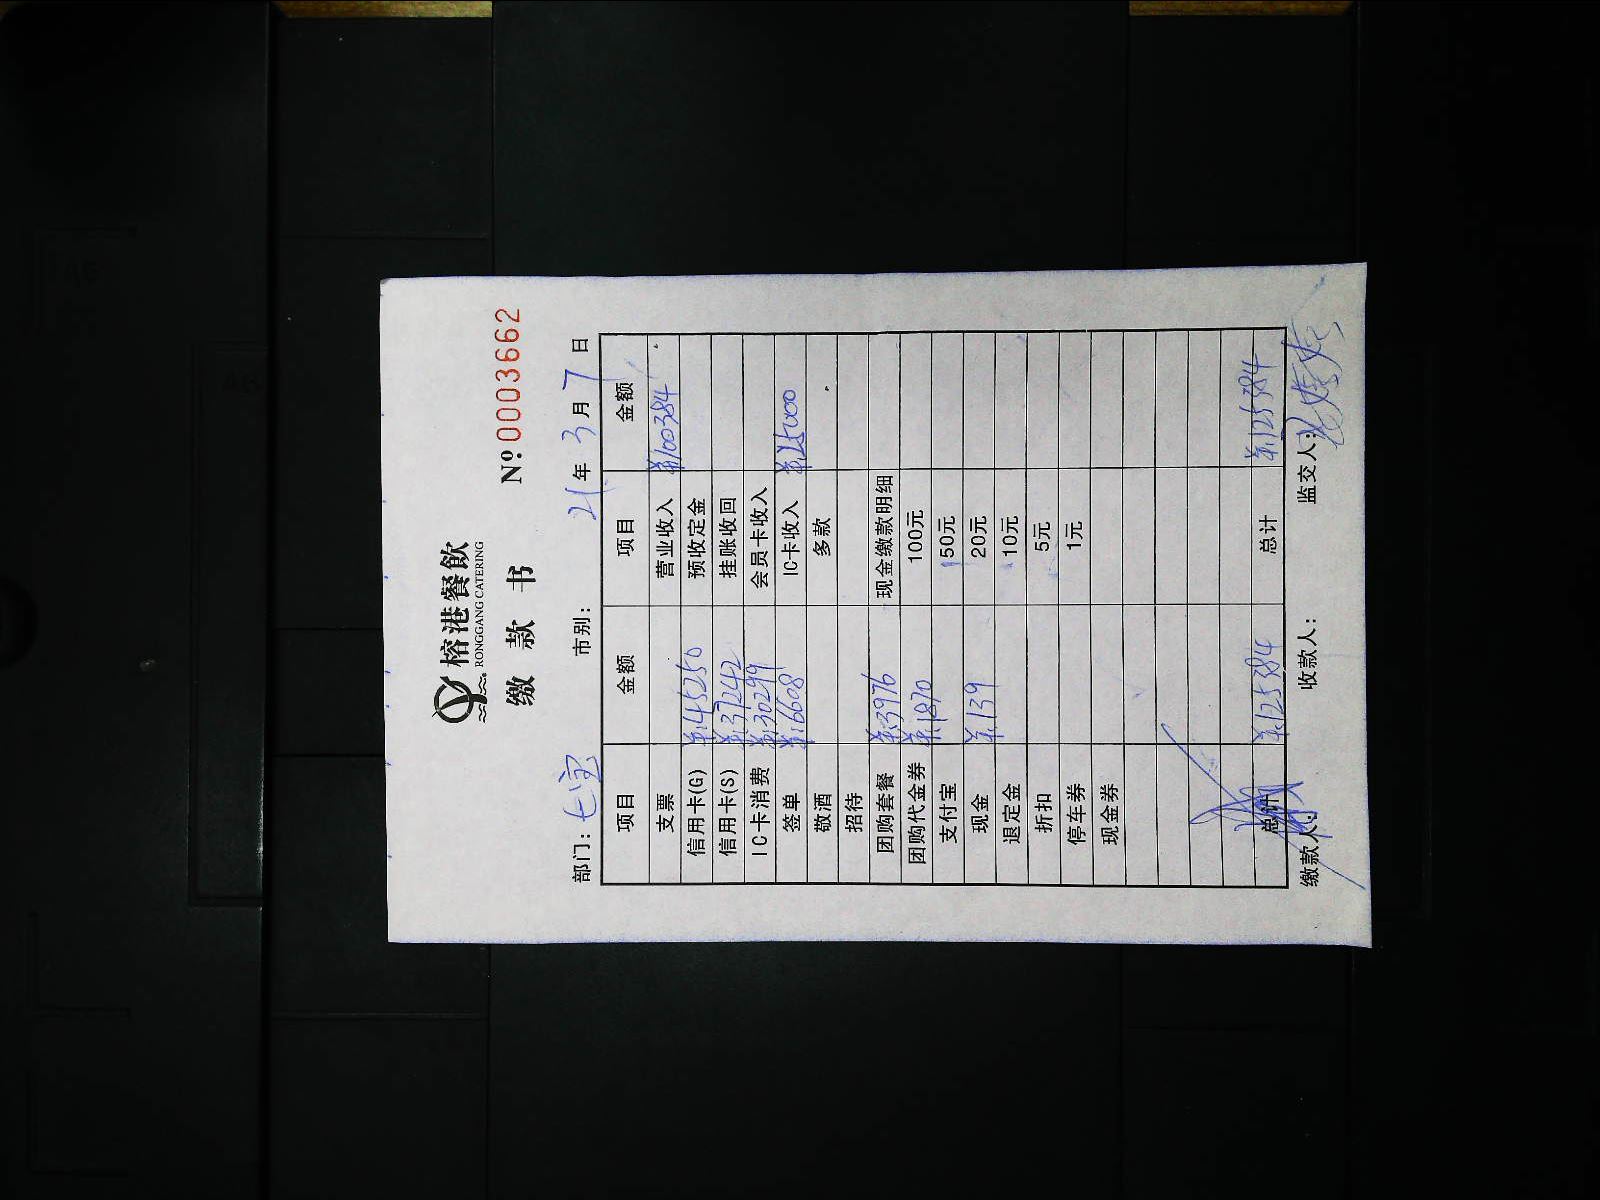 榕港餐飲
RONGGANG CATERING
缴 款 书 Nº 0003662
部门: 七宝 市别: 21年 3月 7日
项目 金额 项目 金额
支票 营业收入 ¥100384
信用卡(G) ¥:45250 预收定金
信用卡(S) ¥:37242 挂账收回
IC卡消费 ¥:30299 会员卡收入
签单 ¥:6608 IC卡收入 ¥:25000
敬酒 多款
招待
团购套餐 ¥:3976 现金缴款明细
团购代金券 ¥:1870 100元
支付宝 50元
现金 ¥:139 20元
退定金 10元
折扣 5元
停车券 1元
现金券
总计 ¥:125384 总计 ¥:125384
缴款人: 收款人: 监交人: